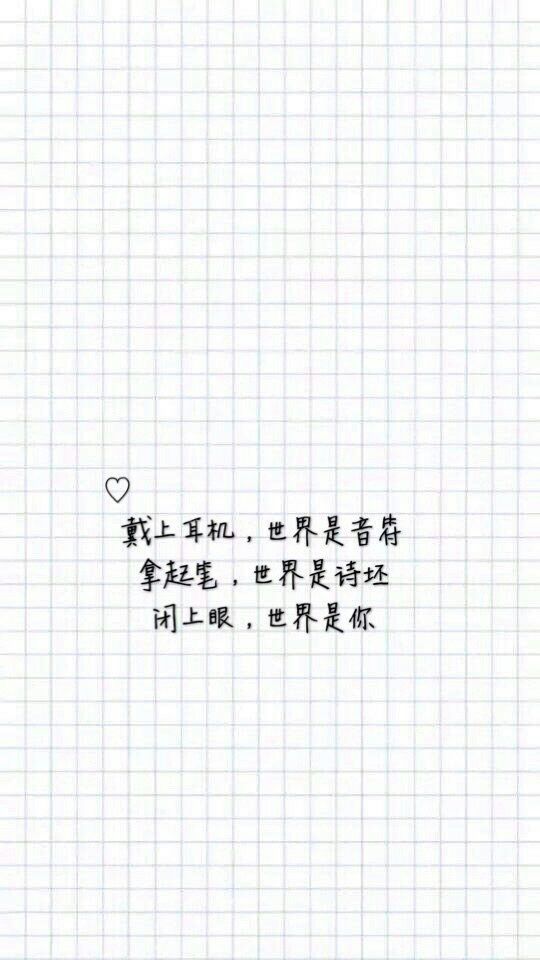 ♡
戴上耳机，世界是音符
拿起笔，世界是诗坯
闭上眼，世界是你